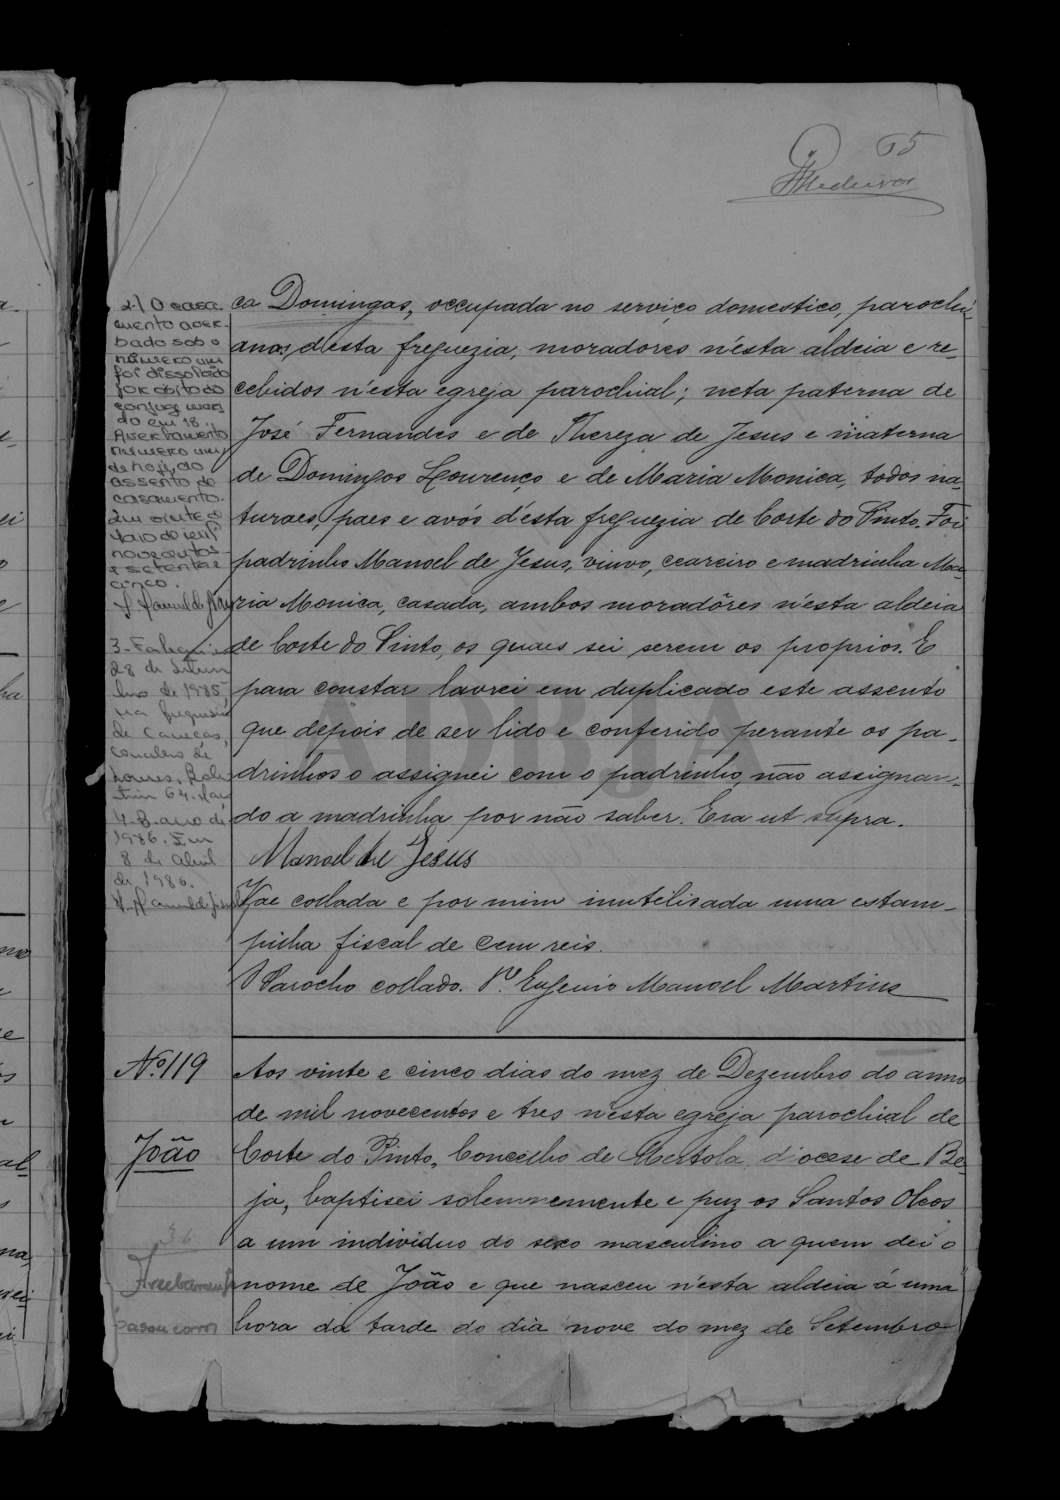 65
Medeiros
2-) O casa-
mento aver-
bado sob o
número um
foi dissolvido
por óbito do
conjuge mari
do em 18.
Averbamento
número um
de hoje, ao
assento de
casamento.
Em vinte de
Maio de mil
novecentos
e setenta e
cinco.
3- Faleceu
28 de Setem
bro de 1985
na freguesia
de Canecas,
concelho de
Loures,
64
ano de
1986. Em
8 de Abril
de 1986.
ca Domingas, occupada no serviço domestico, parochi-
anos d'esta freguezia, moradores n'esta aldeia e re-
cebidos n'esta egreja parochial; neta paterna de
José Fernandes e de Thereza de Jesus e materna
de Domingos Lourenço e de Maria Monica, todos na-
turaes, paes e avós d'esta freguezia de Corte do Pinto. Foi
padrinho Manoel de Jesus, viuvo, ceareiro e madrinha Ma-
ria Monica, casada, ambos moradôres n'esta aldeia
de Corte do Pinto, os quaes sei serem os proprios. E
para constar lavrei em duplicado este assento
que depois de ser lido e conferido perante os pa-
drinhos o assignei com o padrinho, não assignan-
do a madrinha por não saber. Era ut supra.
Manoel de Jesus
Vae collada e por mim inutilisada uma estam-
pilha fiscal de cem reis.
O Parocho collado. Pe. Eugenio Manoel Martins
ADBJA
Nº 119
João
36
Averbamento
Casou com
Aos vinte e cinco dias do mez de Dezembro do anno
de mil novecentos e tres n'esta egreja parochial de
Corte do Pinto, Concelho de Mertola, diocese de Be-
ja, baptisei solemnemente e puz os Santos Oleos
a um individuo do sexo masculino a quem dei o
nome de João e que nasceu n'esta aldeia á uma
hora da tarde do dia nove do mez de Setembro